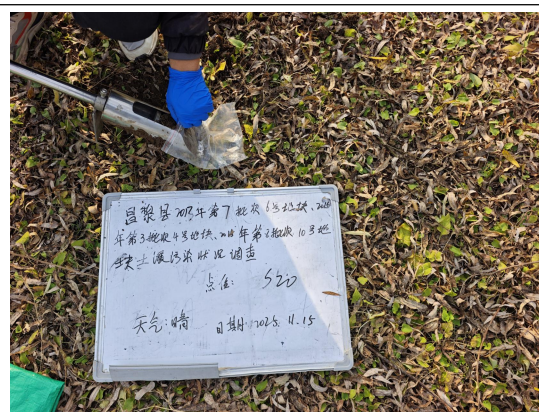 昌黎县2013年第7批次6号地块、
年第3批次4号地块、 年第 批次10号地
块土壤污染状况调查
点位: S20
天气:晴 日期:2025.11.15